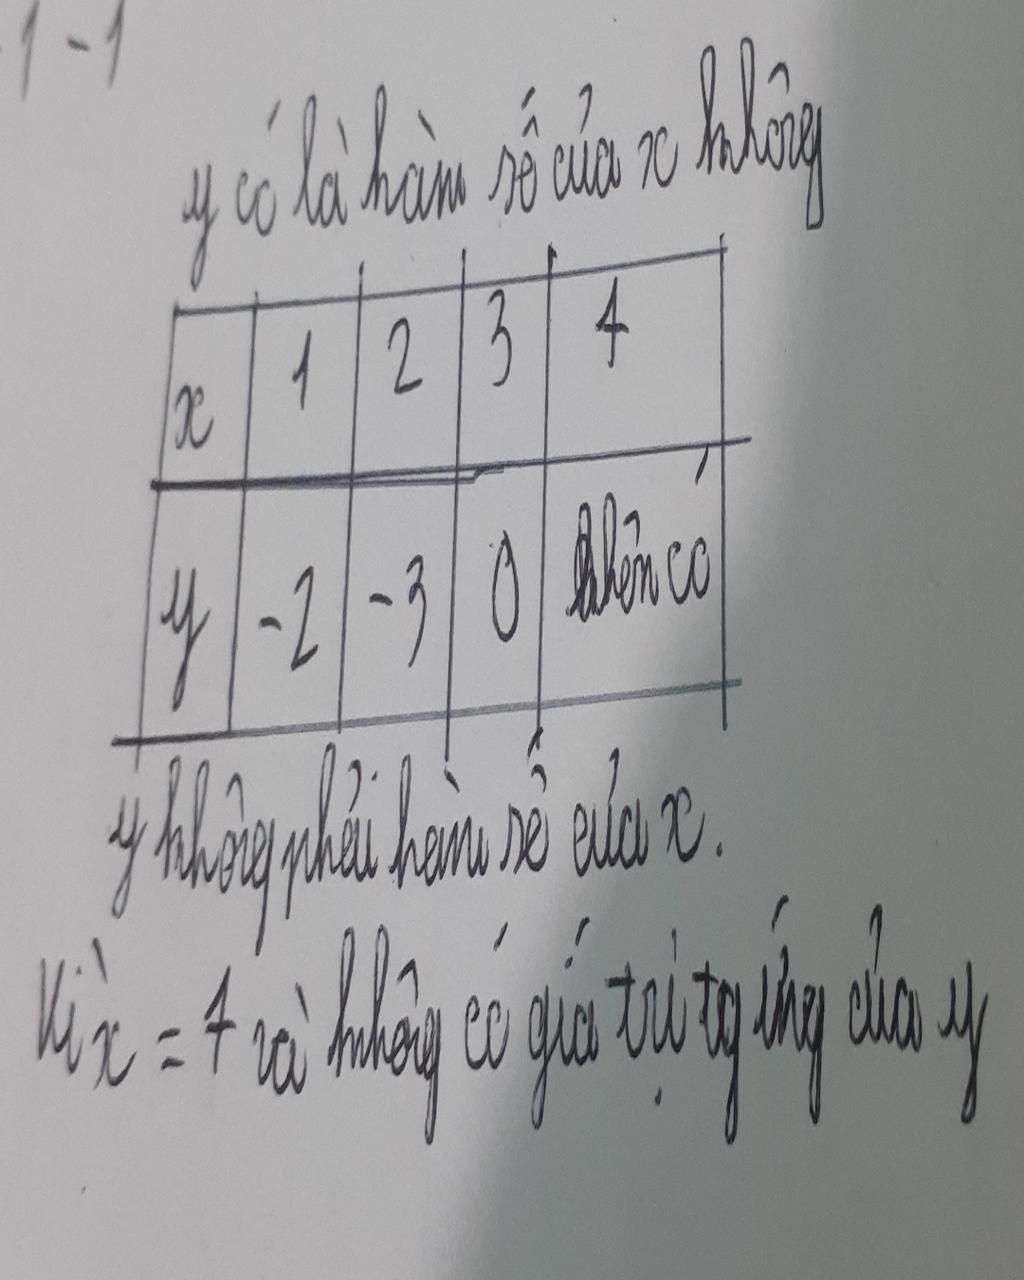 1 - 1
y có là hàm số của x không
x 1 2 3 4
y -2 -3 0 không có
y không phải hàm số của x.
Vì x = 4 và không có giá trị tg ứng của y